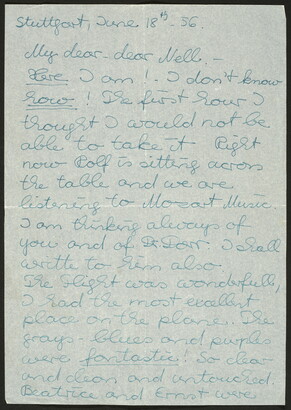 Stuttgart, June 18th -56.
My dear-dear Nell. -
Here I am! - I don't know
how! The first hour I
thought I would not be
able to take it Right
now Rolf is sitting across
the table and we are
listening to Mozart Music.
I am thinking always of
you and of Dr. Dorr. I shall
write to him also
The Flight was wonderfull,
I had the most exellent
place on the plane. The
grays - blues and purples
were fantastic! So clear
and clean and untouched.
Beatrice and Ernst were